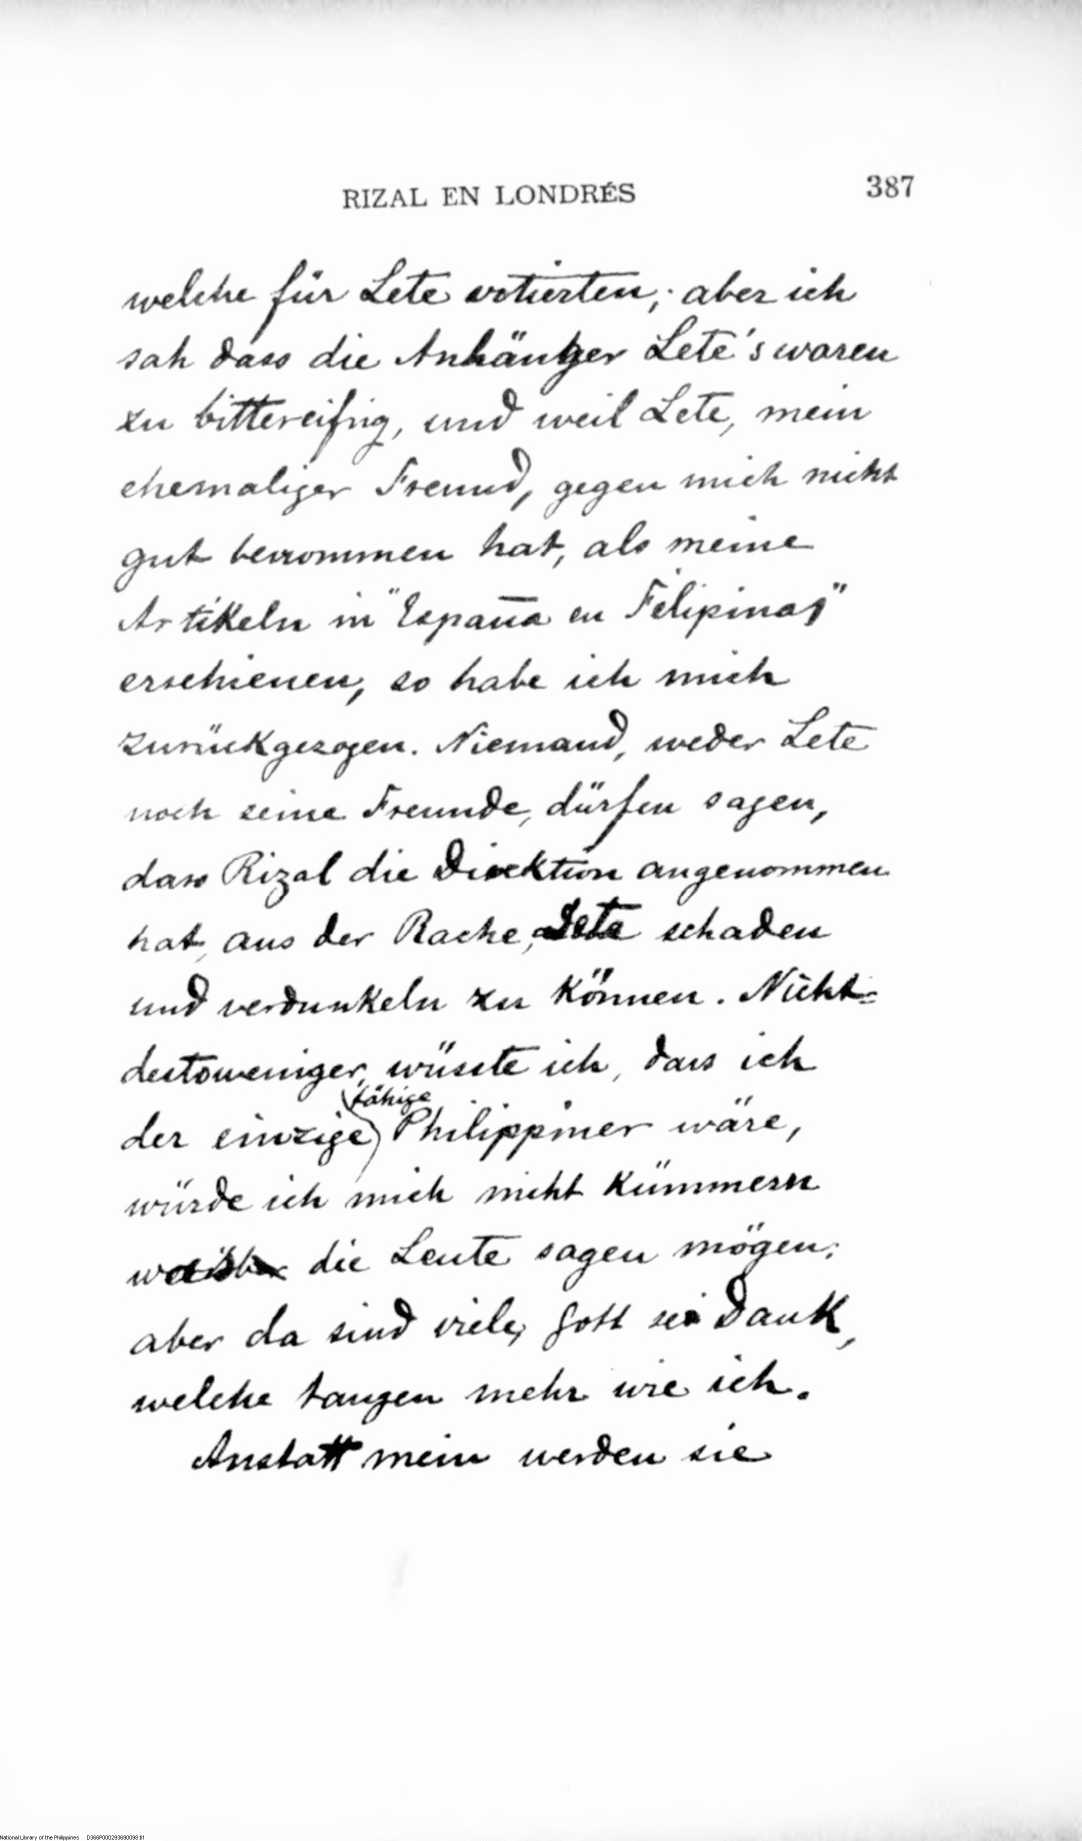 RIZAL EN LONDRÉS 387
welche für Lete votierten; aber ich
sah dass die Anhänger Lete's waren
zu bittereifrig, und weil Lete, mein
ehemaliger Freund, gegen mich nicht
gut benommen hat, als meine
Artikeln in "España en Filipinas"
erschienen, so habe ich mich
zurückgezogen. Niemand, weder Lete
noch seine Freunde, dürfen sagen,
dass Rizal die Direktion angenommen
hat, aus der Rache, Lete schaden
und verdunkeln zu können. Nicht-
destoweniger, wüsste ich, dass ich
fähige
der einzige Philippiner wäre,
würde ich mich nicht kümmern
die Leute sagen mögen;
aber da sind viele, Gott sei Dank,
welche taugen mehr wie ich.
Anstatt mein werden sie
National Library of the Philippines